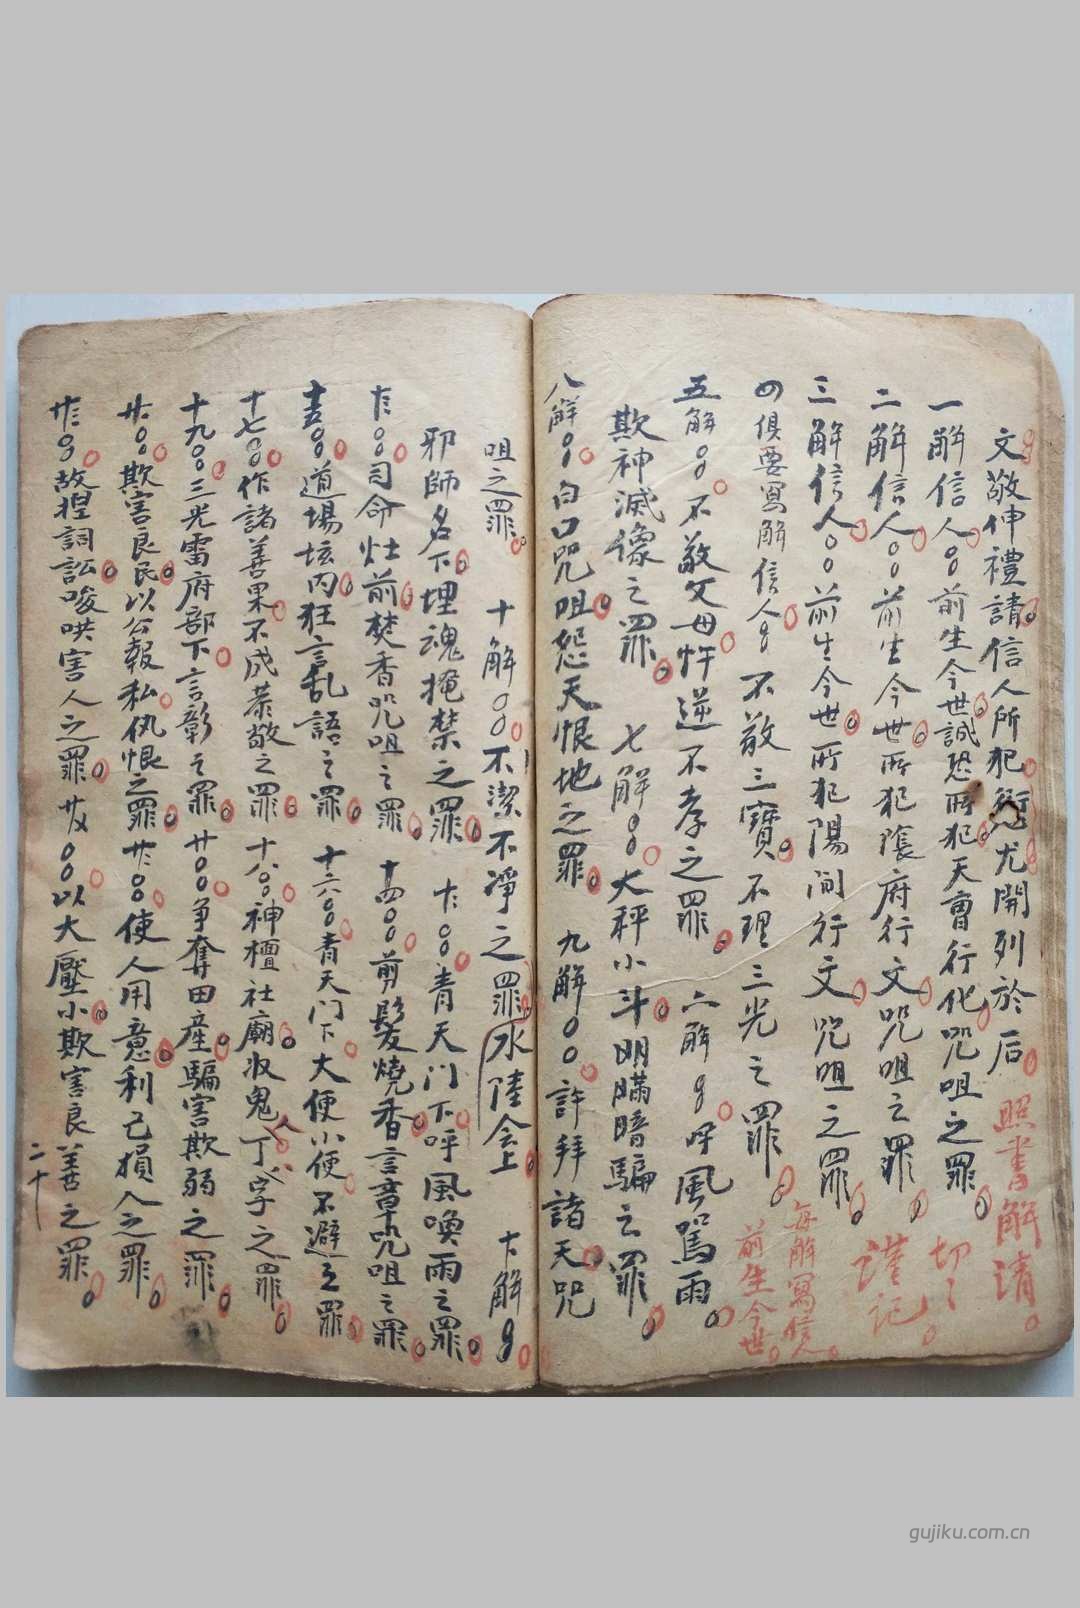 文敬伸禮請信人所犯愆尤開列於后 照書解清
一解信人〇〇前生今世誠恐所犯天曹行化咒咀之罪 切々
二解信人〇〇前生今世所犯陰府行文咒咀之罪 謹记
三解信人〇〇前生今世所犯陽间行文咒咀之罪
四俱要寫解信人〇〇不敬三寶不理三光之罪 每解寫信人前生今世
五解〇〇不敬父母忤逆不孝之罪 六解〇〇呼風罵雨
欺神滅像之罪 七解〇〇大秤小斗明瞞暗騙之罪
八解〇〇白口咒咀怨天恨地之罪 九解〇〇許拜諸天咒
咀之罪 十解〇〇不潔不凈之罪水陸会上 十解〇〇
邪師名下埋魂掩禁之罪 〇〇青天门下呼風喚雨之罪
〇〇司命灶前焚香咒咀之罪 十四〇〇剪髮燒香言章咒咀之罪
〇〇道場坛内狂言乱語之罪 十六〇〇青天门下大便小便不避之罪
十七〇〇作諸善果不成恭敬之罪 十八〇〇神檀社廟收鬼丁字之罪
十九〇〇三光雷府部下言彰之罪 廿〇〇争奪田產騙害欺弱之罪
〇〇欺害良民以公報私仇恨之罪 〇〇使人用意利己損人之罪
〇〇故捏詞訟唆哄害人之罪 〇〇以大壓小欺害良善之罪
二十
gujiku.com.cn